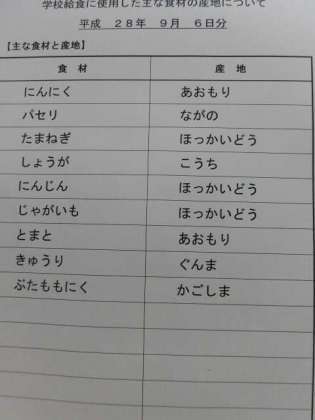 学校給食に使用した主な食材の産地について
平成　２８年　９月　６日分
【主な食材と産地】
食　材　産　地
にんにく　あおもり
パセリ　ながの
たまねぎ　ほっかいどう
しょうが　こうち
にんじん　ほっかいどう
じゃがいも　ほっかいどう
とまと　あおもり
きゅうり　ぐんま
ぶたももにく　かごしま